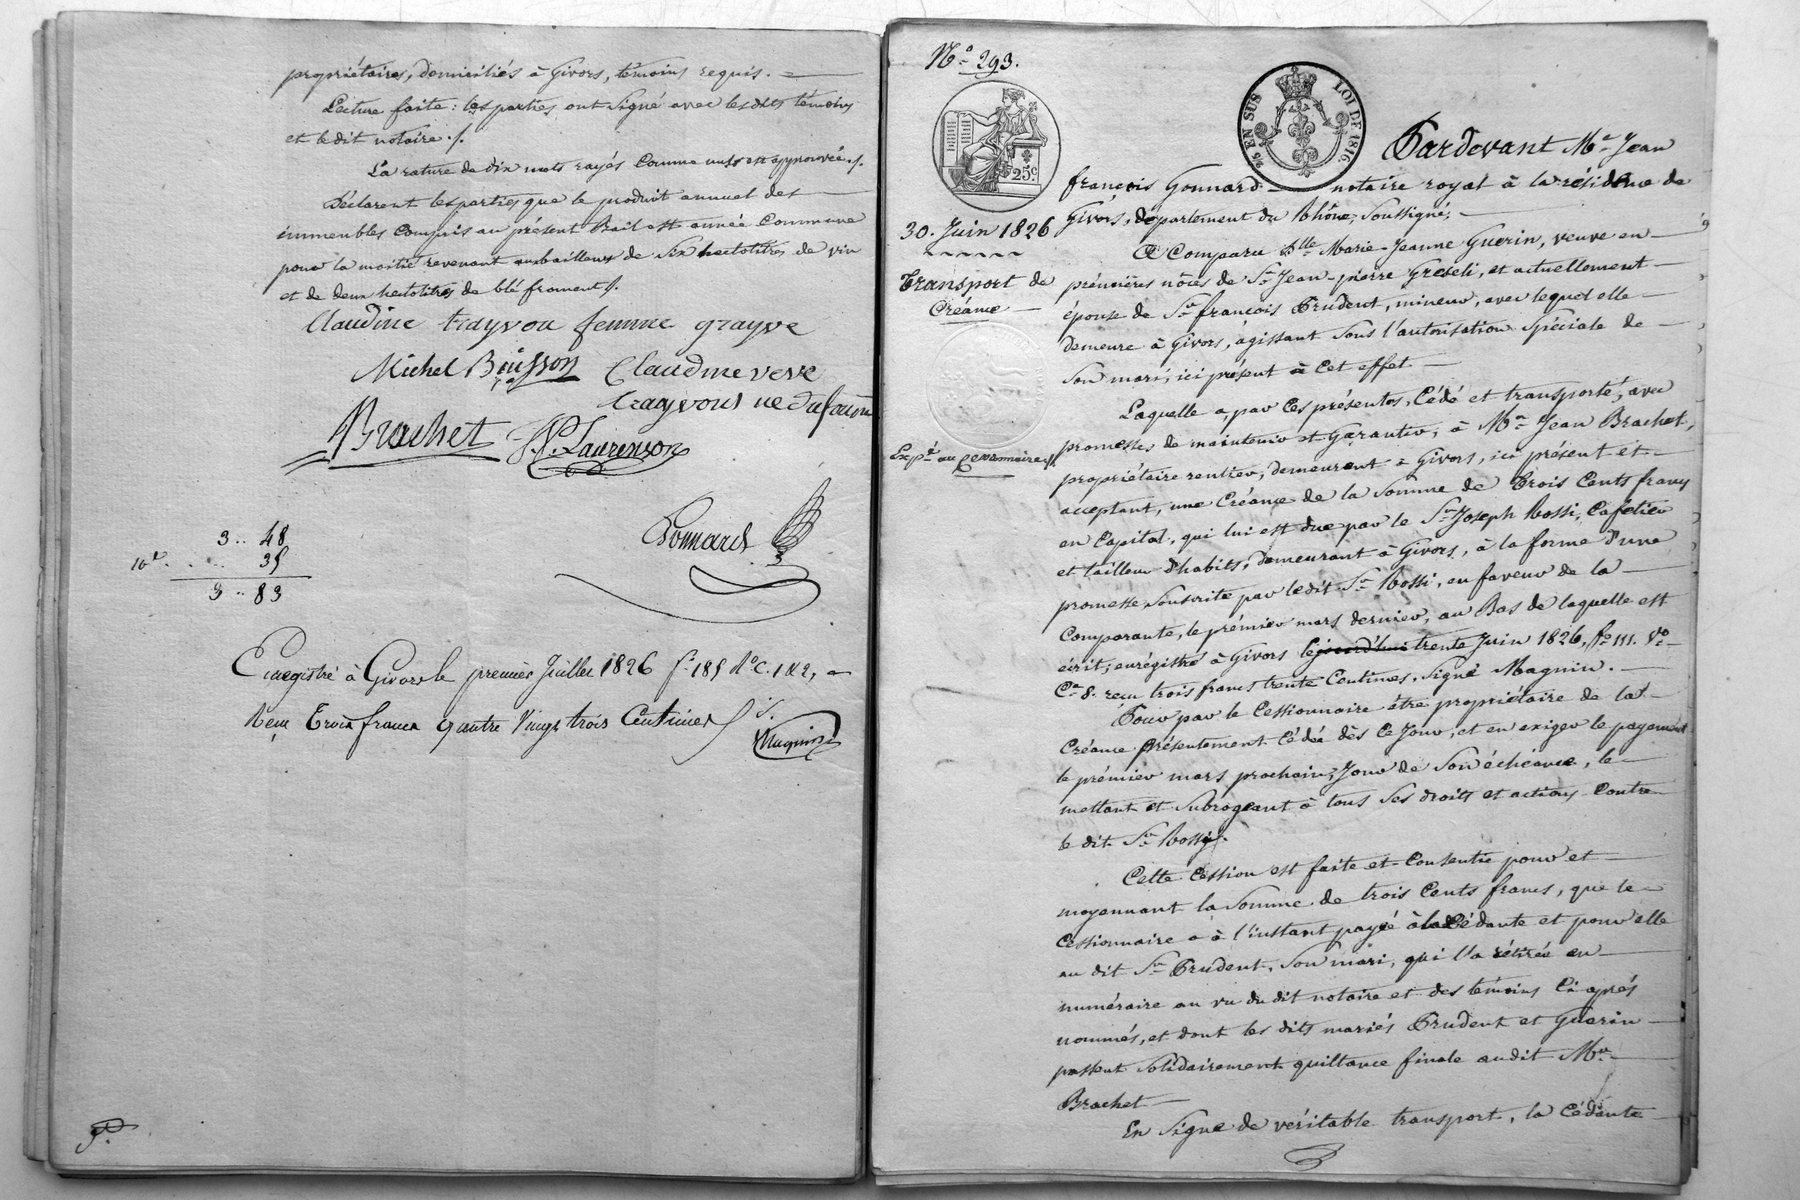 propriétaires, domiciliés à Givors, témoins requis.
Lecture faite: les parties ont signé avec les dits témoins
et le dit notaire./.
La rature de dix mots rayés comme nuls est approuvée./.
Déclarent les parties que le produit annuel des
immeubles compris au présent Bail est année commune
pour la moitié revenant aux bailleurs de six hectolitres de vin
et de deux hectolitres de blé froment./.
Claudine trayvou femme grayve
Michel Bouisson Claudine veve
trayvoul
Brachet Laurenson
Gonnard
3.. 48
10e. . ... 35
3.. 83
Enregistré à Givors le premier Juillet 1826 fo 185 Ro C. 1 & 2,
Reçu Trois francs quatre Vingt trois Centimes
Magnin
No 293.
25c.
95 EN SUS LOI DE 1816
30. Juin 1826
Transport de
Créance
Expé au Cessionnaire
Pardevant Me Jean
françois Gonnard notaire royal à la résidence de
Givors, département du Rhône, soussigné,
A Comparu Dlle Marie-Jeanne Guerin, veuve en
prémières nôces de Sr Jean-pierre Greseli, et actuellement
épouse de Sr françois Prudent, mineur, avec lequel elle
demeure à Givors, agissant sous l'autorisation spéciale de
son mari, ici présent à cet effet
Laquelle a, par ces présentes, Cédé et transporté, avec
promesse de maintenir et garantir, à Mr Jean Brachet,
propriétaire rentier, demeurant à Givors, ici présent et
acceptant, une Créance de la somme de Trois Cents francs
en Capital, qui lui est due par le Sr Joseph Rossi, Cafetier
et tailleur d'habits, demeurant à Givors, à la forme d'une
promesse souscrite par ledit Sr Rossi, en faveur de la
Comparante, le prémier mars dernier, au Bas de laquelle est
écrit; enrégistré à Givors le jourd'hui trente Juin 1826, fo 111. Vo
Ce 8. reçu trois francs trente Centimes, signé Magnin.
Pour par le Cessionnaire être propriétaire de la
Créance présentement Cédée dès ce jour, et en exiger le payement
le prémier mars prochain, Jour de son échéance, le
mettant et subrogeant à tous ses droits et actions contre
le dit Sr Rossi.
Cette cession est faite et Consentie pour et
moyennant la somme de trois Cents francs, que le
Cessionnaire a à l'instant payée à la Cédante et pour elle
au dit Sr Prudent, son mari, qui l'a rétirée en
numéraire au vu du dit notaire et des témoins Ci-après
nommés, et dont les dits mariés Prudent et Guerin
passent solidairement quittance finale audit Mr
Brachet
En Signe de véritable transport, la Cédante